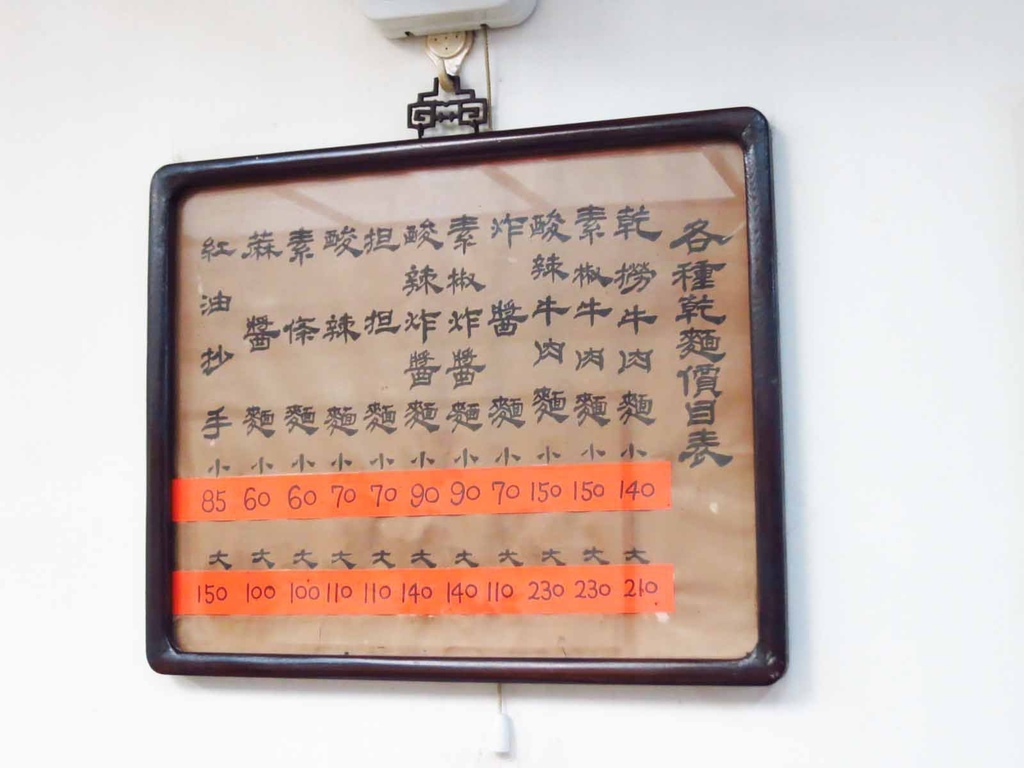 各種乾麵價目表
乾撈牛肉麵小140大210
素椒牛肉麵小150大230
酸辣牛肉麵小150大230
炸醬麵小70大110
素椒炸醬麵小90大140
酸辣炸醬麵小90大140
担担麵小70大110
酸辣麵小70大110
素條麵小60大100
蔴醬麵小60大100
紅油抄手小85大150